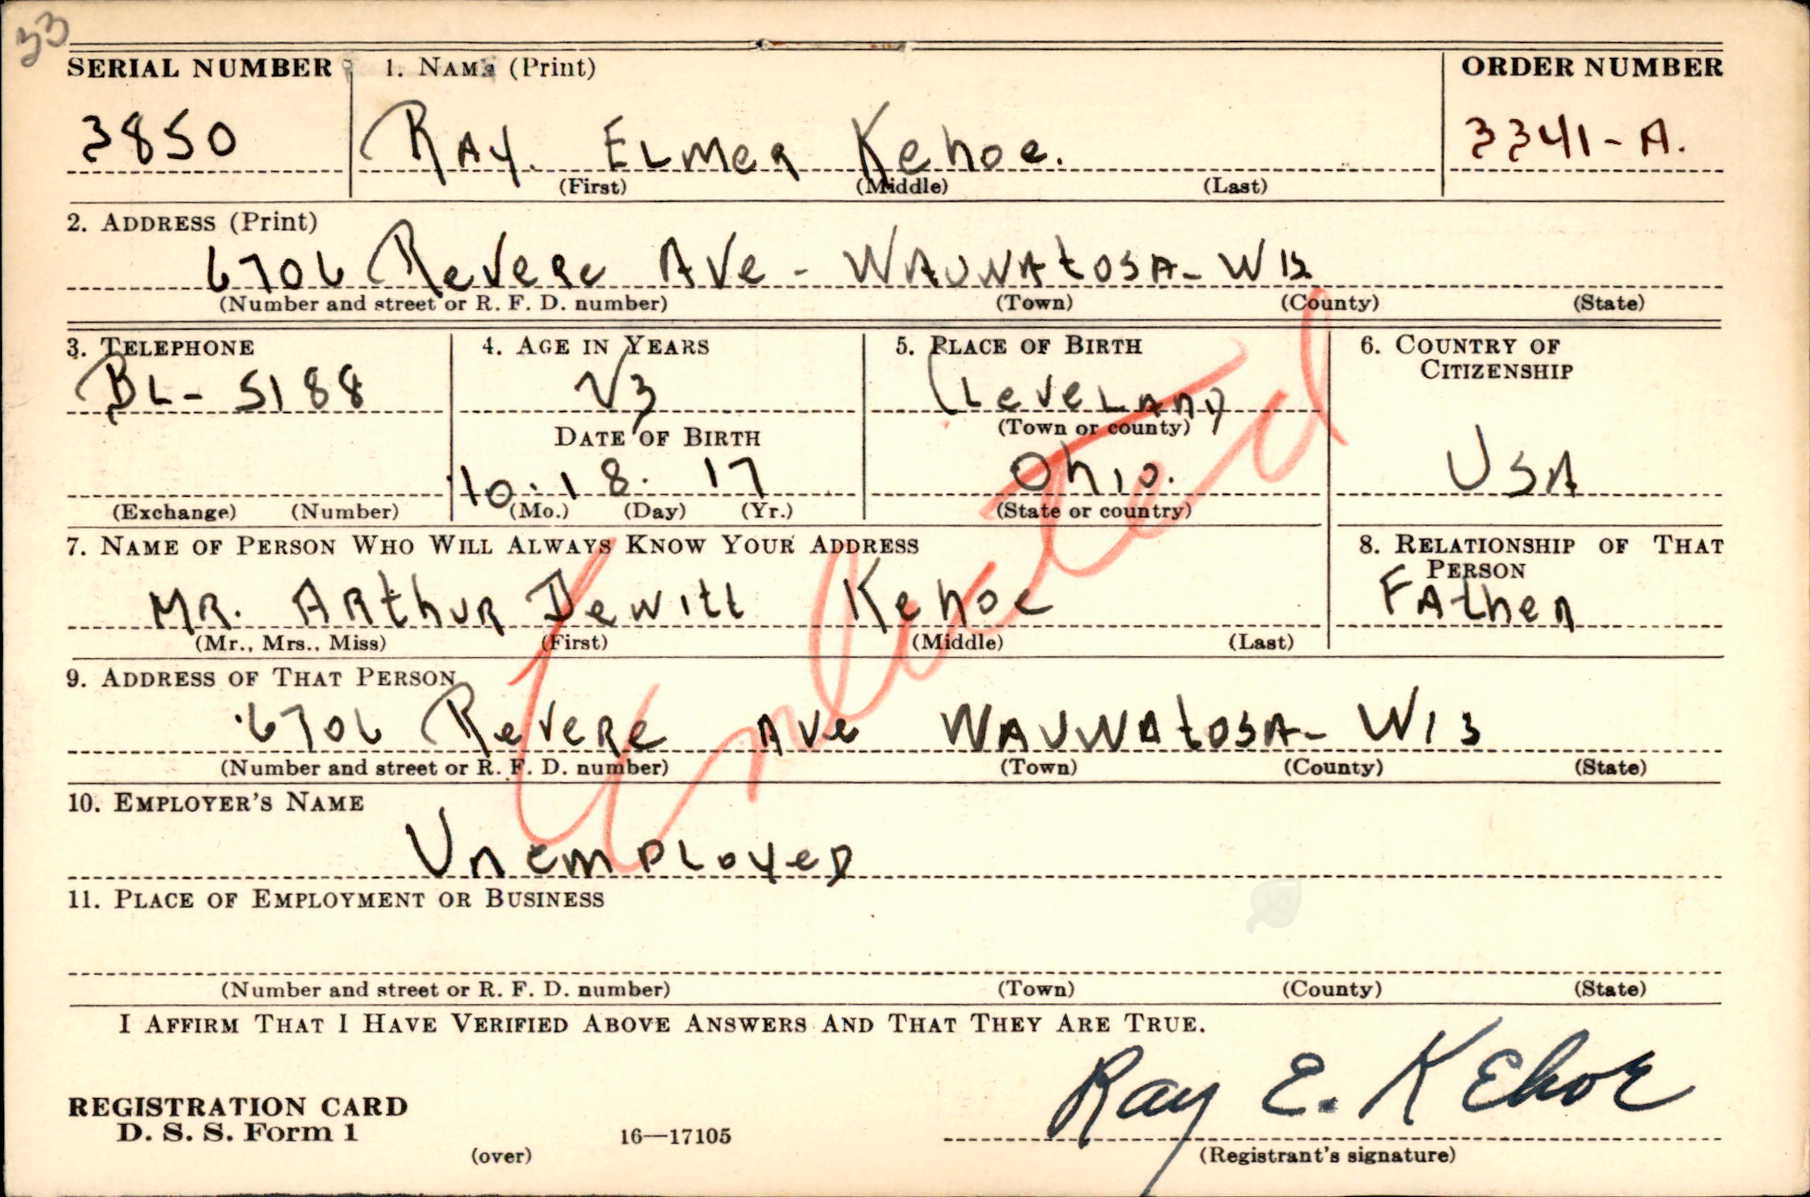 33
SERIAL NUMBER 1. NAME (Print) ORDER NUMBER
3850 RAY. ELMER Kehoe. 3341-A.
(First) (Middle) (Last)
2. ADDRESS (Print)
6706 Revere Ave - WAUWAtOSA - WIS
(Number and street or R. F. D. number) (Town) (County) (State)
3. TELEPHONE 4. AGE IN YEARS 5. PLACE OF BIRTH 6. COUNTRY OF CITIZENSHIP
BL - 5188 23 CLeveLAND
DATE OF BIRTH (Town or county)
10. 18. 17 Ohio. USA
(Exchange) (Number) (Mo.) (Day) (Yr.) (State or country)
7. NAME OF PERSON WHO WILL ALWAYS KNOW YOUR ADDRESS 8. RELATIONSHIP OF THAT PERSON
MR. ARthUR Dewitt Kehoe FAther
(Mr., Mrs., Miss) (First) (Middle) (Last)
9. ADDRESS OF THAT PERSON
6706 Revere Ave WAUWAtOSA - WIS
(Number and street or R. F. D. number) (Town) (County) (State)
Enlisted
10. EMPLOYER'S NAME
UnemPLoyeD
11. PLACE OF EMPLOYMENT OR BUSINESS
(Number and street or R. F. D. number) (Town) (County) (State)
I AFFIRM THAT I HAVE VERIFIED ABOVE ANSWERS AND THAT THEY ARE TRUE.
Ray E. Kehoe
REGISTRATION CARD
D. S. S. Form 1 16—17105
(over) (Registrant's signature)